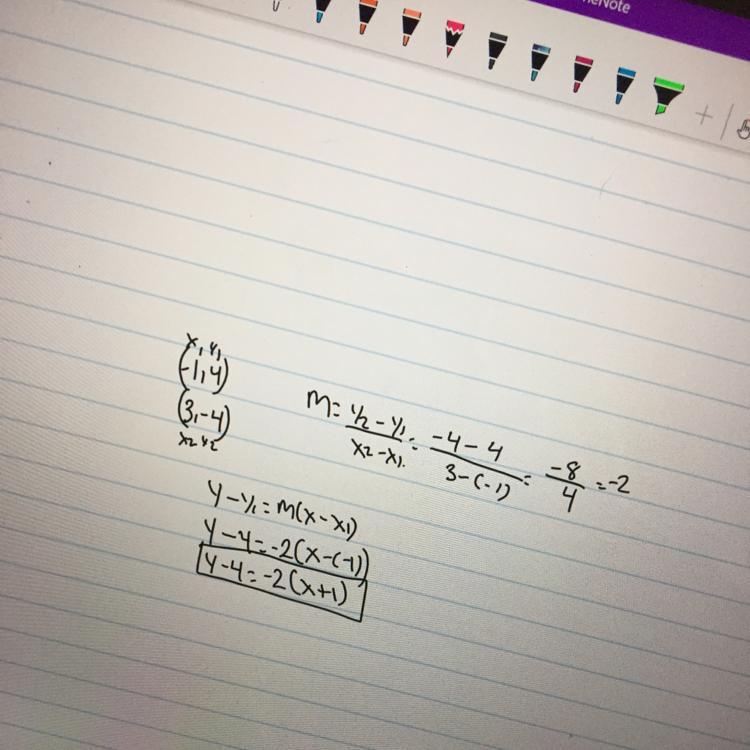 eNote
x₁ y₁
(-1, 4)
(3, -4)
x₂ y₂
M = y₂ - y₁ / x₂ - x₁ = -4 - 4 / 3 - (-1) = -8 / 4 = -2
y - y₁ = M(x - x₁)
y - 4 = -2(x - (-1))
y - 4 = -2(x + 1)